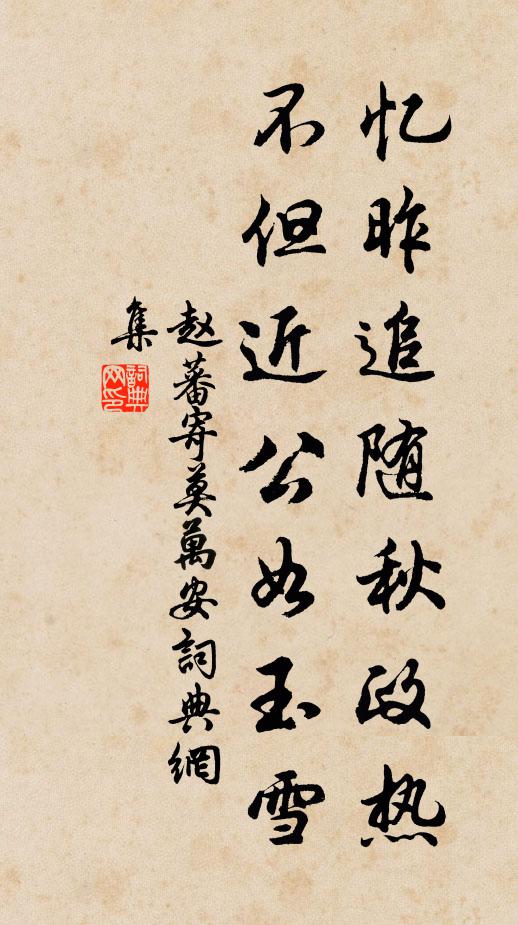 忆昨追随秋政热
不但近公如玉雪
赵蕃寄莫萬安詞典網
集
詞典网印